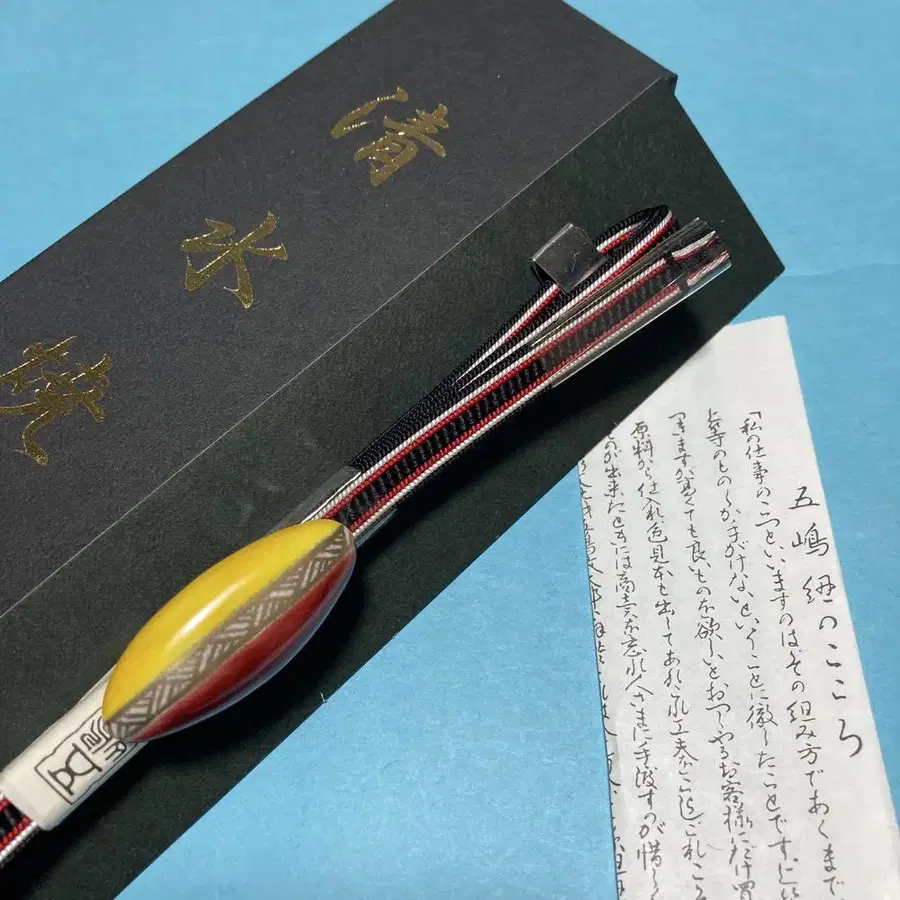 清水焼
五嶋紐のこころ
「私の仕事のこつといいますのは、その組み方であくまで
上等のものしか手がけないということに徹したことです。
きますが高くても良いものを欲しいとおっしゃるお客様にだけ買
原料から仕入れ色見本も出してあれこれ工夫をこらしこれこ
ものが出来たときには商売を忘れ人さまに手渡すのが惜し